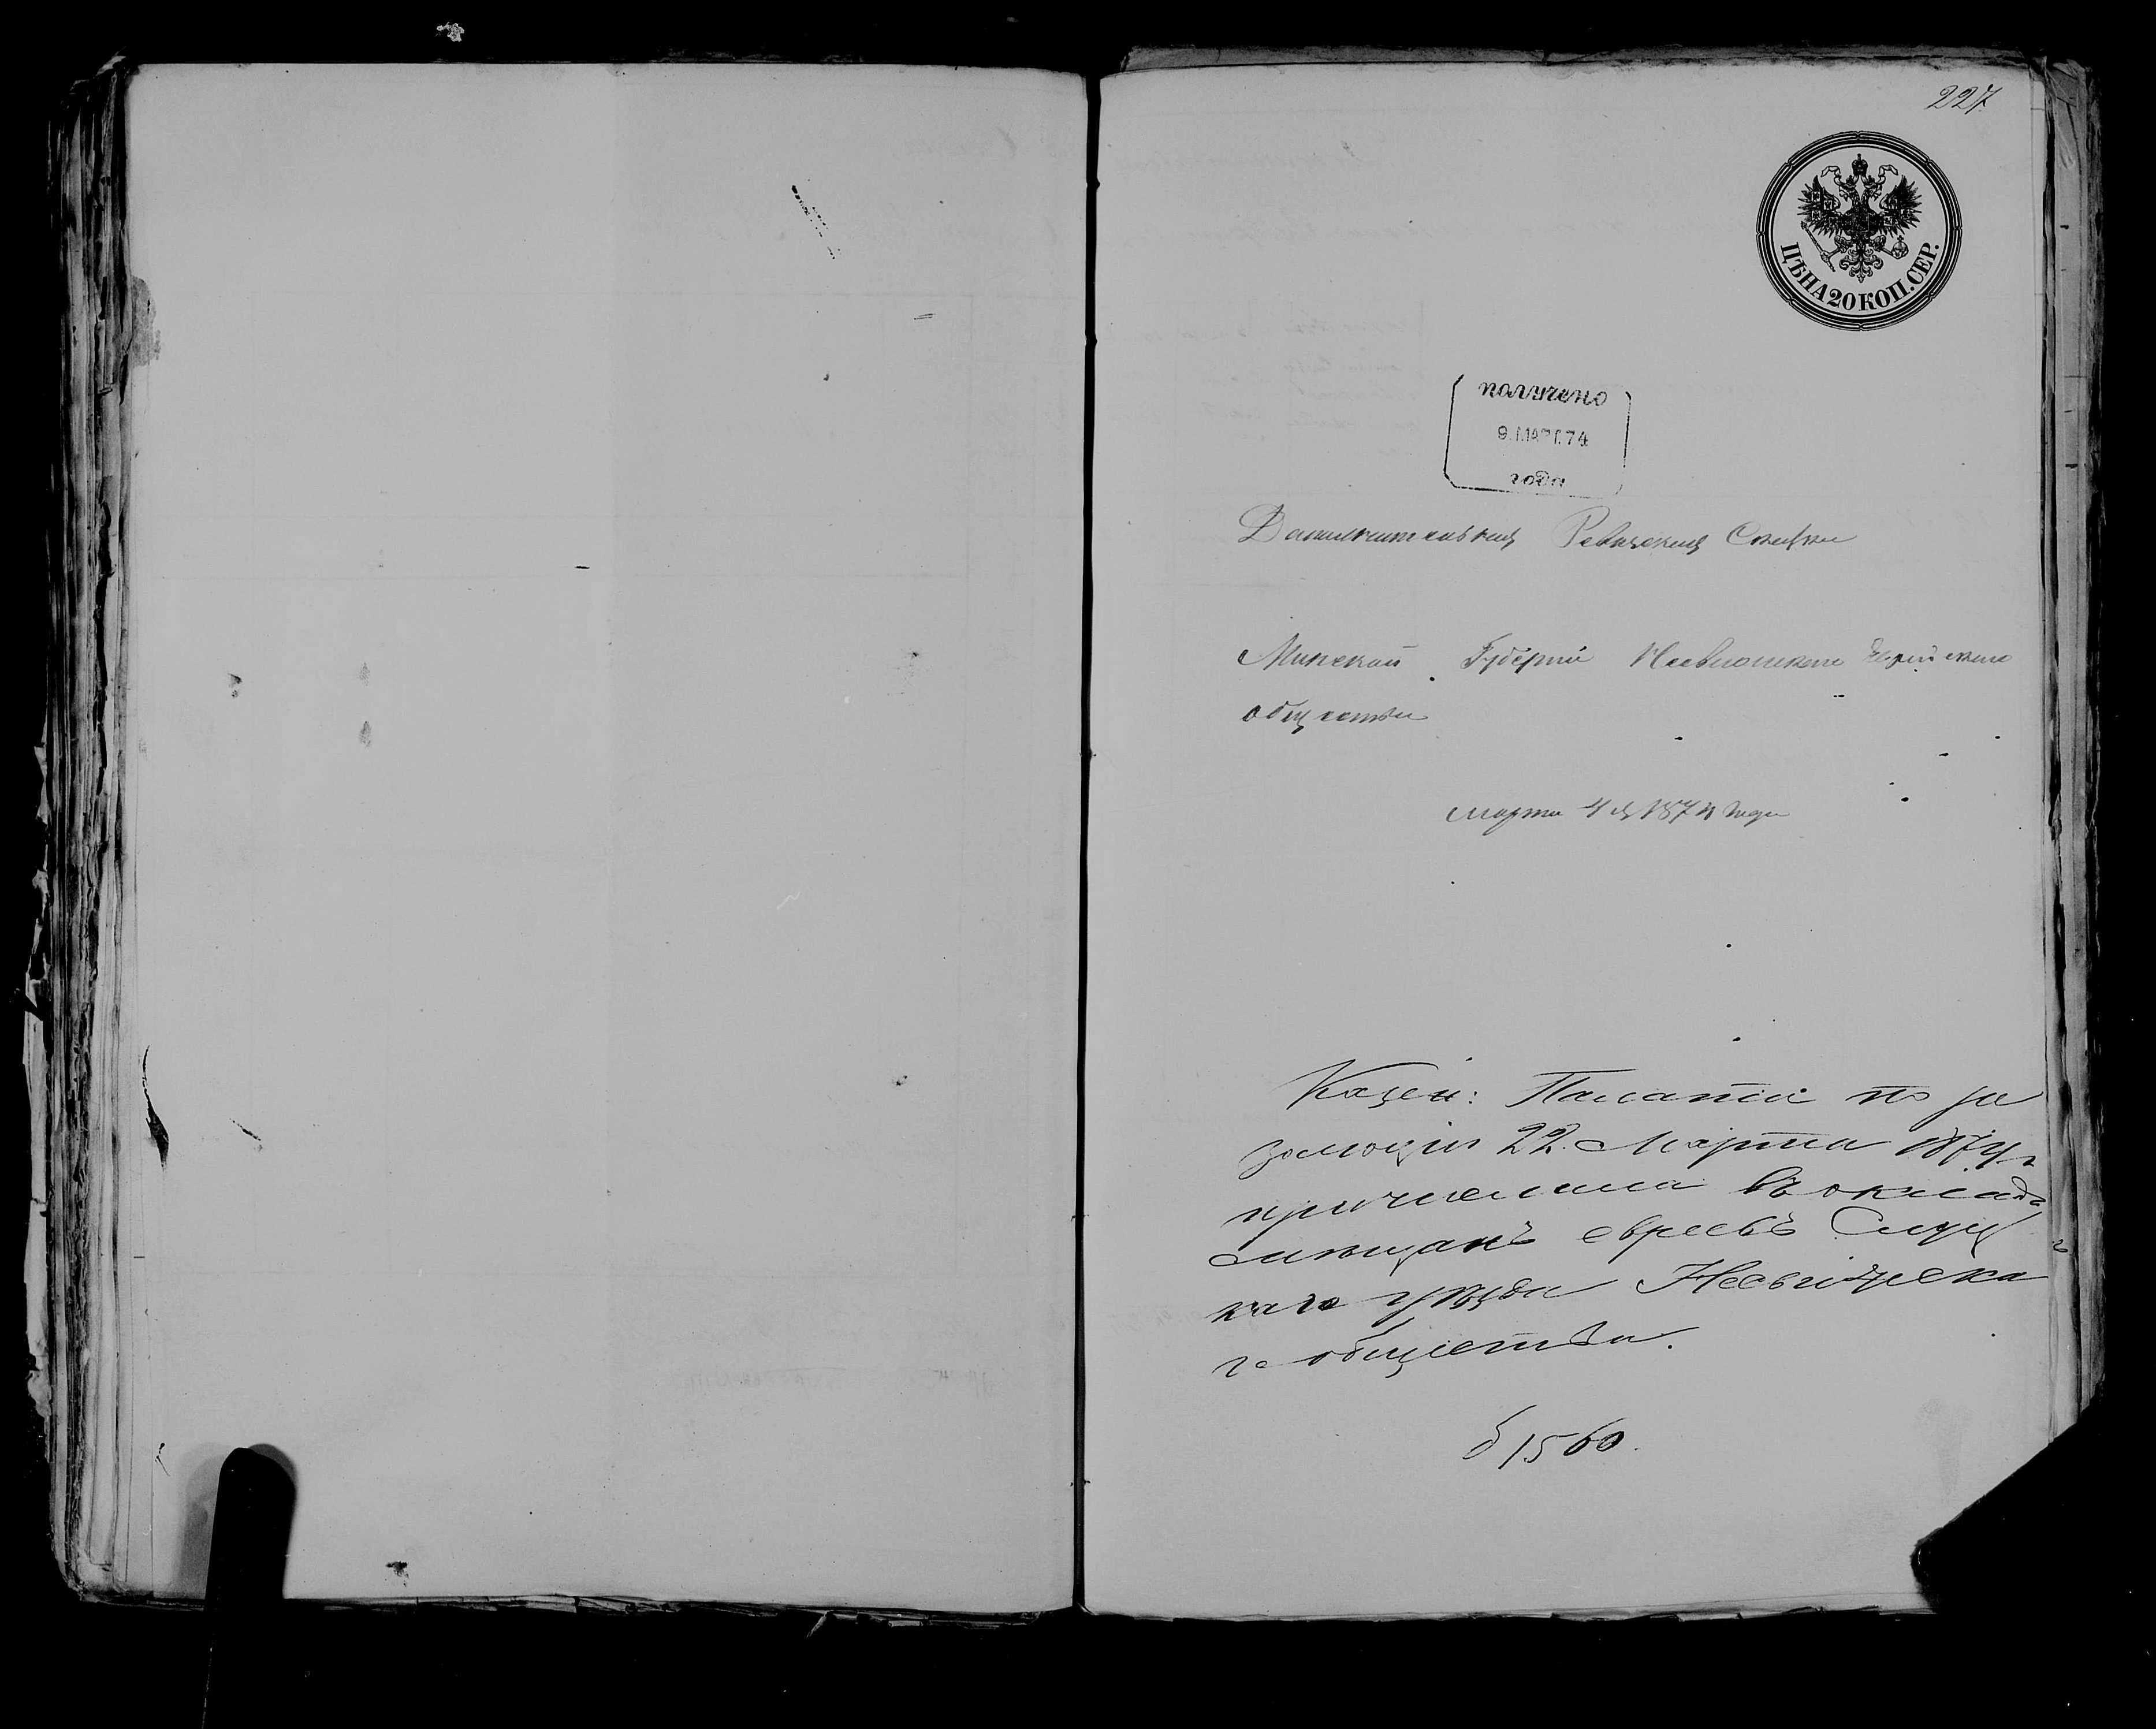 227
ЦѢНА 20 КОП. СЕР.
получено
9 МАРТ 74
года
Дополнительная Ревизская Сказка
Минской Губерніи Несвижскаго Еврейскаго
общества
Марта 4 дня 1874 года
Казен: Палатою по ре
золюціи 22 Марта 1874 г
причислена въ окладъ
мѣщанъ евреевъ Слуц
каго уѣзда Несвижска
го общества.
1560.